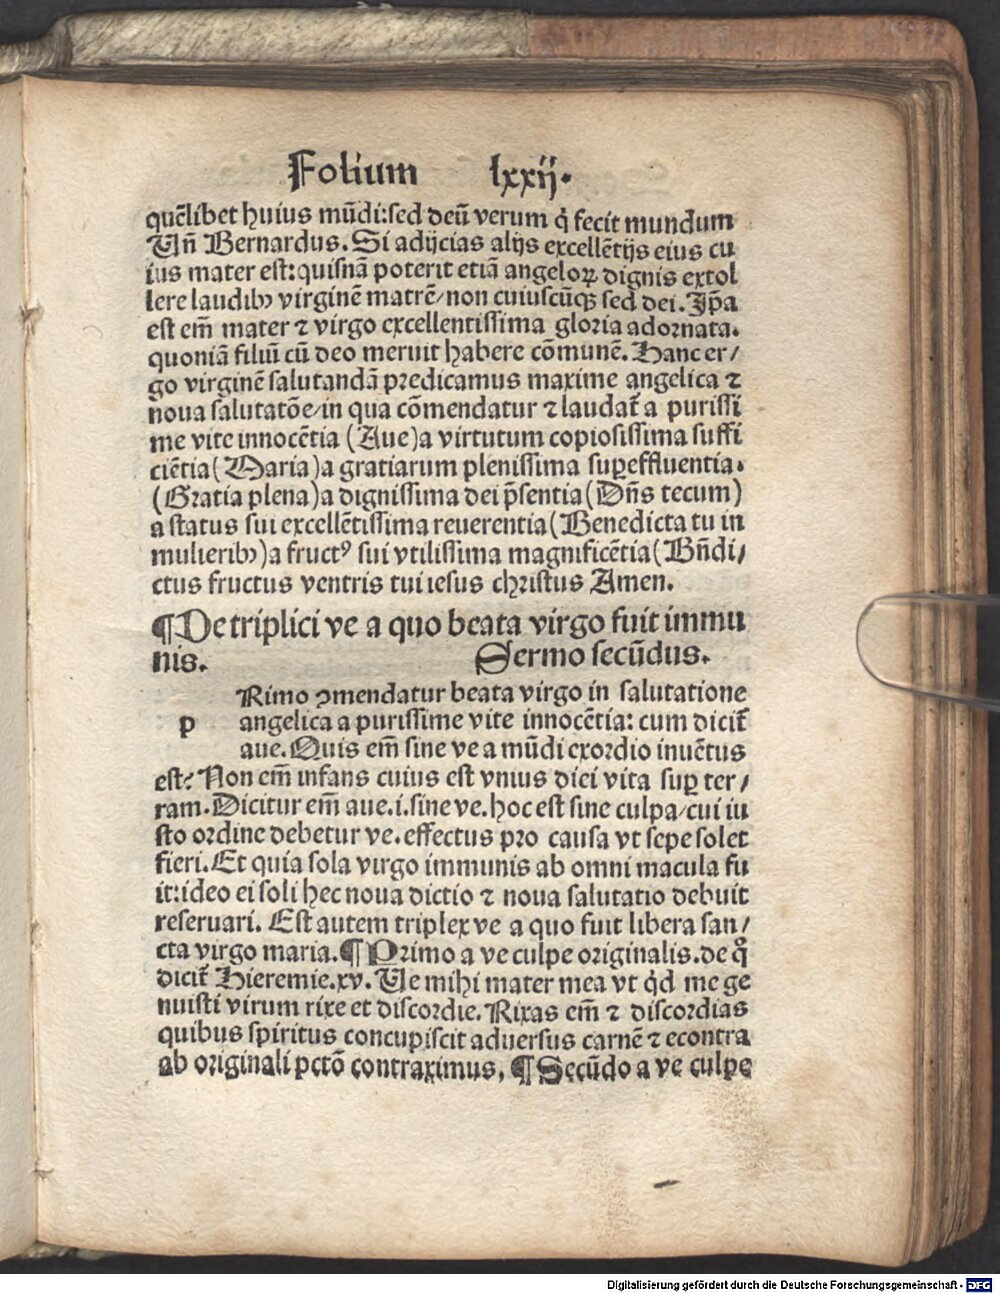 Folium lxxij.
quēlibet huius mūdi:sed deū verum q̇ fecit mundum
Un̄ Bernardus. Si adijcias alijs excellētijs eius cu
ius mater est: quisnā poterit etiā angeloꝝ dignis extol
lere laudibꝫ virginē matrē/non cuiuscūqꝫ sed dei. Ip̄a
est em̄ mater ⁊ virgo excellentissima gloria adornata.
quoniā filiū cū deo meruit habere cōmunē. Hanc er/
go virginē salutandā predicamus maxime angelica ⁊
noua salutatōe/in qua cōmendatur ⁊ laudat̄ a purissi
me vite innocētia (Aue) a virtutum copiosissima suffi
ciētia (Maria) a gratiarum plenissima suꝑeffluentia.
(Gratia plena) a dignissima dei p̄sentia (Dn̄s tecum)
a status sui excellētissima reuerentia (Benedicta tu in
mulieribꝫ) a fructꝰ sui vtilissima magnificētia (Bn̄di/
ctus fructus ventris tui iesus christus Amen.
¶De triplici ve a quo beata virgo fuit immu
nis. Sermo secūdus.
Rimo ꝯmendatur beata virgo in salutatione
p angelica a purissime vite innocētia: cum dicit̄
aue. Quis em̄ sine ve a mūdi exordio inuētus
est? Non em̄ infans cuius est vnius diei vita suꝑ ter/
ram. Dicitur em̄ aue .i. sine ve. hoc est sine culpa/cui iu
sto ordine debetur ve. effectus pro causa vt sepe solet
fieri. Et quia sola virgo immunis ab omni macula fu
it: ideo ei soli hec noua dictio ⁊ noua salutatio debuit
reseruari. Est autem triplex ve a quo fuit libera san/
cta virgo maria. ¶Primo a ve culpe originalis. de q̊
dicit̄ Hieremie.xv. Ue mihi mater mea vt q̇d me ge
nuisti virum rixe et discordie. Rixas em̄ ⁊ discordias
quibus spiritus concupiscit aduersus carnē ⁊ econtra
ab originali pctō contraximus. ¶Secūdo a ve culpe
Digitalisierung gefördert durch die Deutsche Forschungsgemeinschaft - DFG